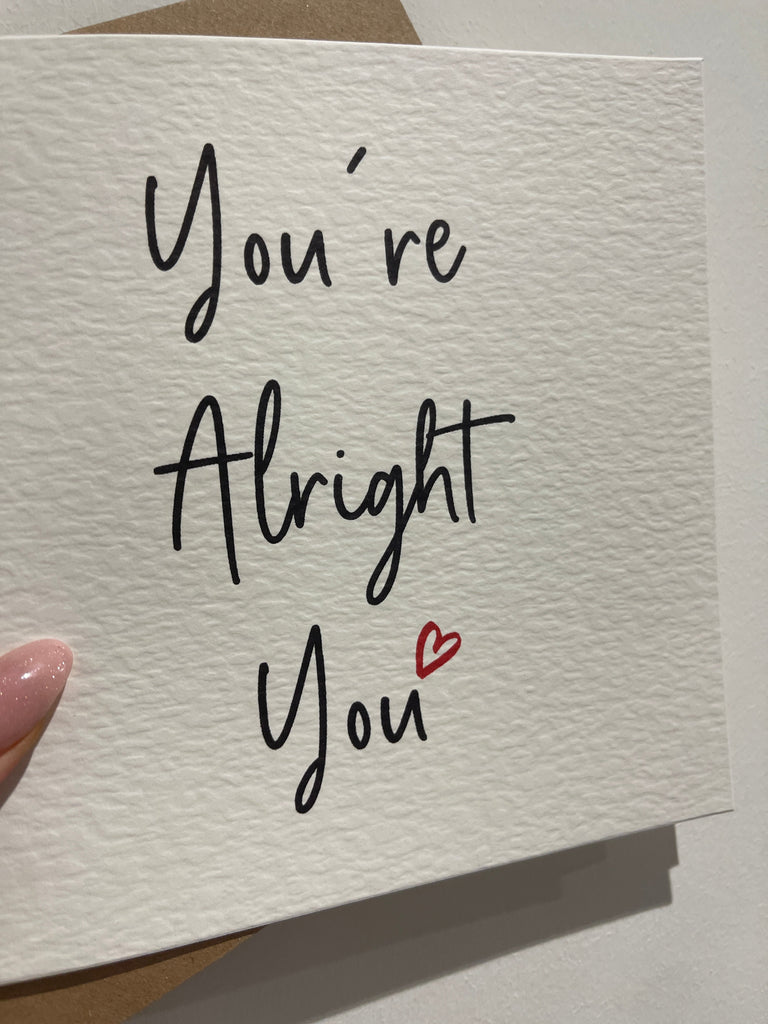 You're
Alright
You